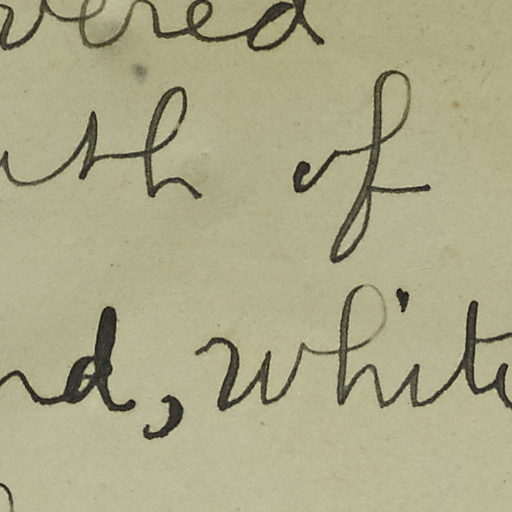 vered
uth of
nd, white